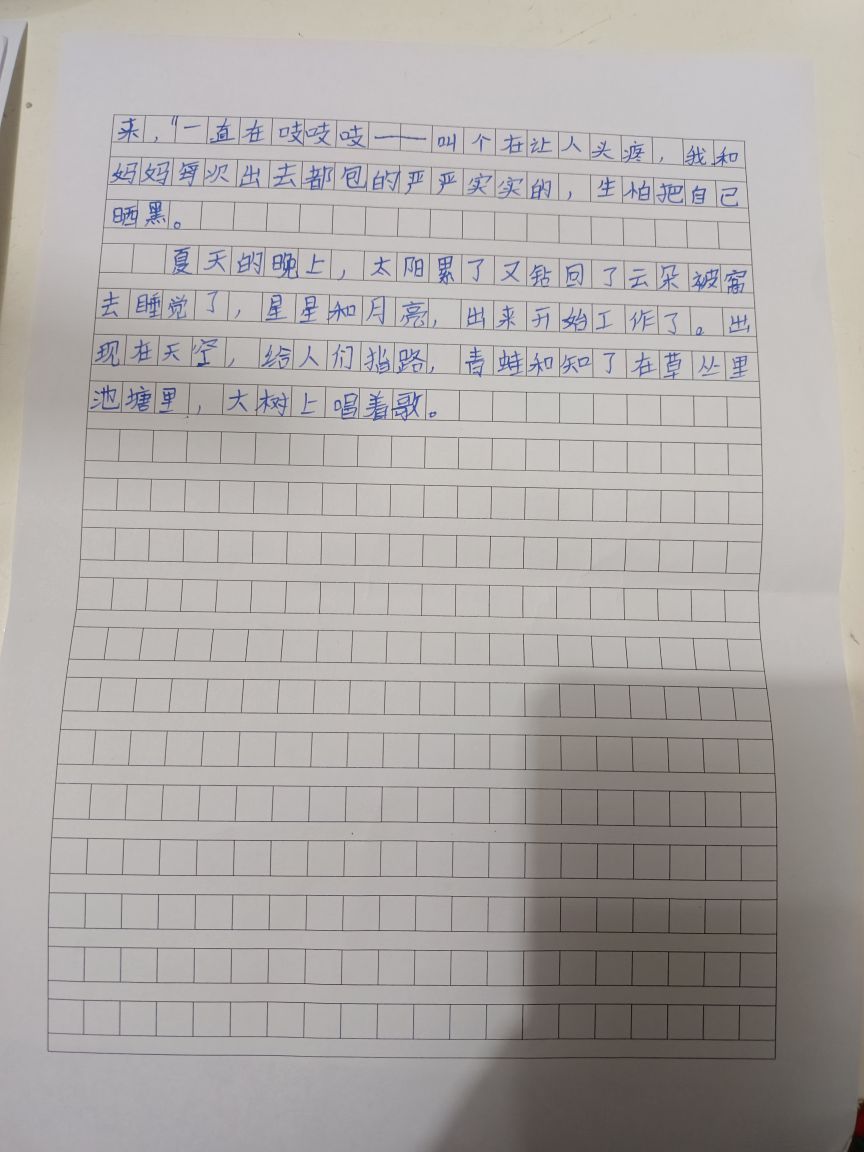 来，"一直在吱吱吱——叫个在让人头疼，我和
妈妈每次出去都包的严严实实的，生怕把自己
晒黑。
夏天的晚上，太阳累了又钻回了云朵被窝
去睡觉了，星星和月亮，出来开始工作了。出
现在天空，给人们指路，青蛙和知了在草丛里
池塘里，大树上唱着歌。